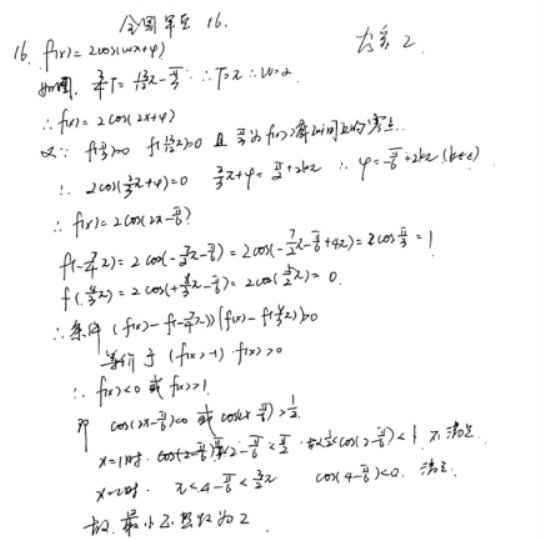 全国甲卷 16.
答案 2.
16. f(x)=2cos(ωx+φ)
如图. 3/4T=13/12π-π/3 ∴T=π ∴ω=2
∴ f(x)=2cos(2x+φ)
又∵ f(π/3)=0 f(13/12π)>0 且 π/3 为 f(x) 的零点.
∴ 2cos(2/3π+φ)=0 2/3π+φ=π/2+2kπ ∴ φ=-π/6+2kπ (k∈z)
∴ f(x)=2cos(2x-π/6)
f(-7/4π)=2cos(-7/2π-π/6)=2cos(-7/2π-π/6+4π)=2cosπ/3=1
f(4/3π)=2cos(+8/3π-π/6)=2cos(5/2π)=0.
∴条件 (f(x)-f(-7/4π))(f(x)-f(4/3π))>0
等价于 (f(x)-1)·f(x)>0
∴ f(x)<0 或 f(x)>1.
即 cos(2x-π/6)<0 或 cos(2x-π/6)>1/2.
x=1时. 2-π/6<π/2 cos(2-π/6)<1 不满足.
x=2时. π<4-π/6<3/2π cos(4-π/6)<0. 满足.
故.最小正整数为2